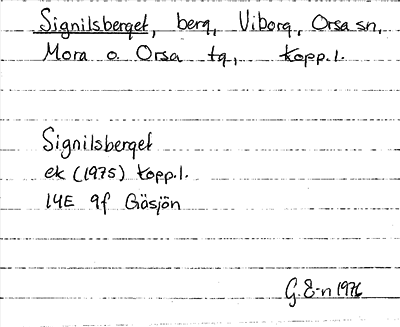 Signilsberget, berg, Viborg, Orsa sn,
Mora o. Orsa tg, Kopp.l.
Signilsberget
ek (1975) Kopp.l.
14E 9f Gåsjön
G.E-n 1976